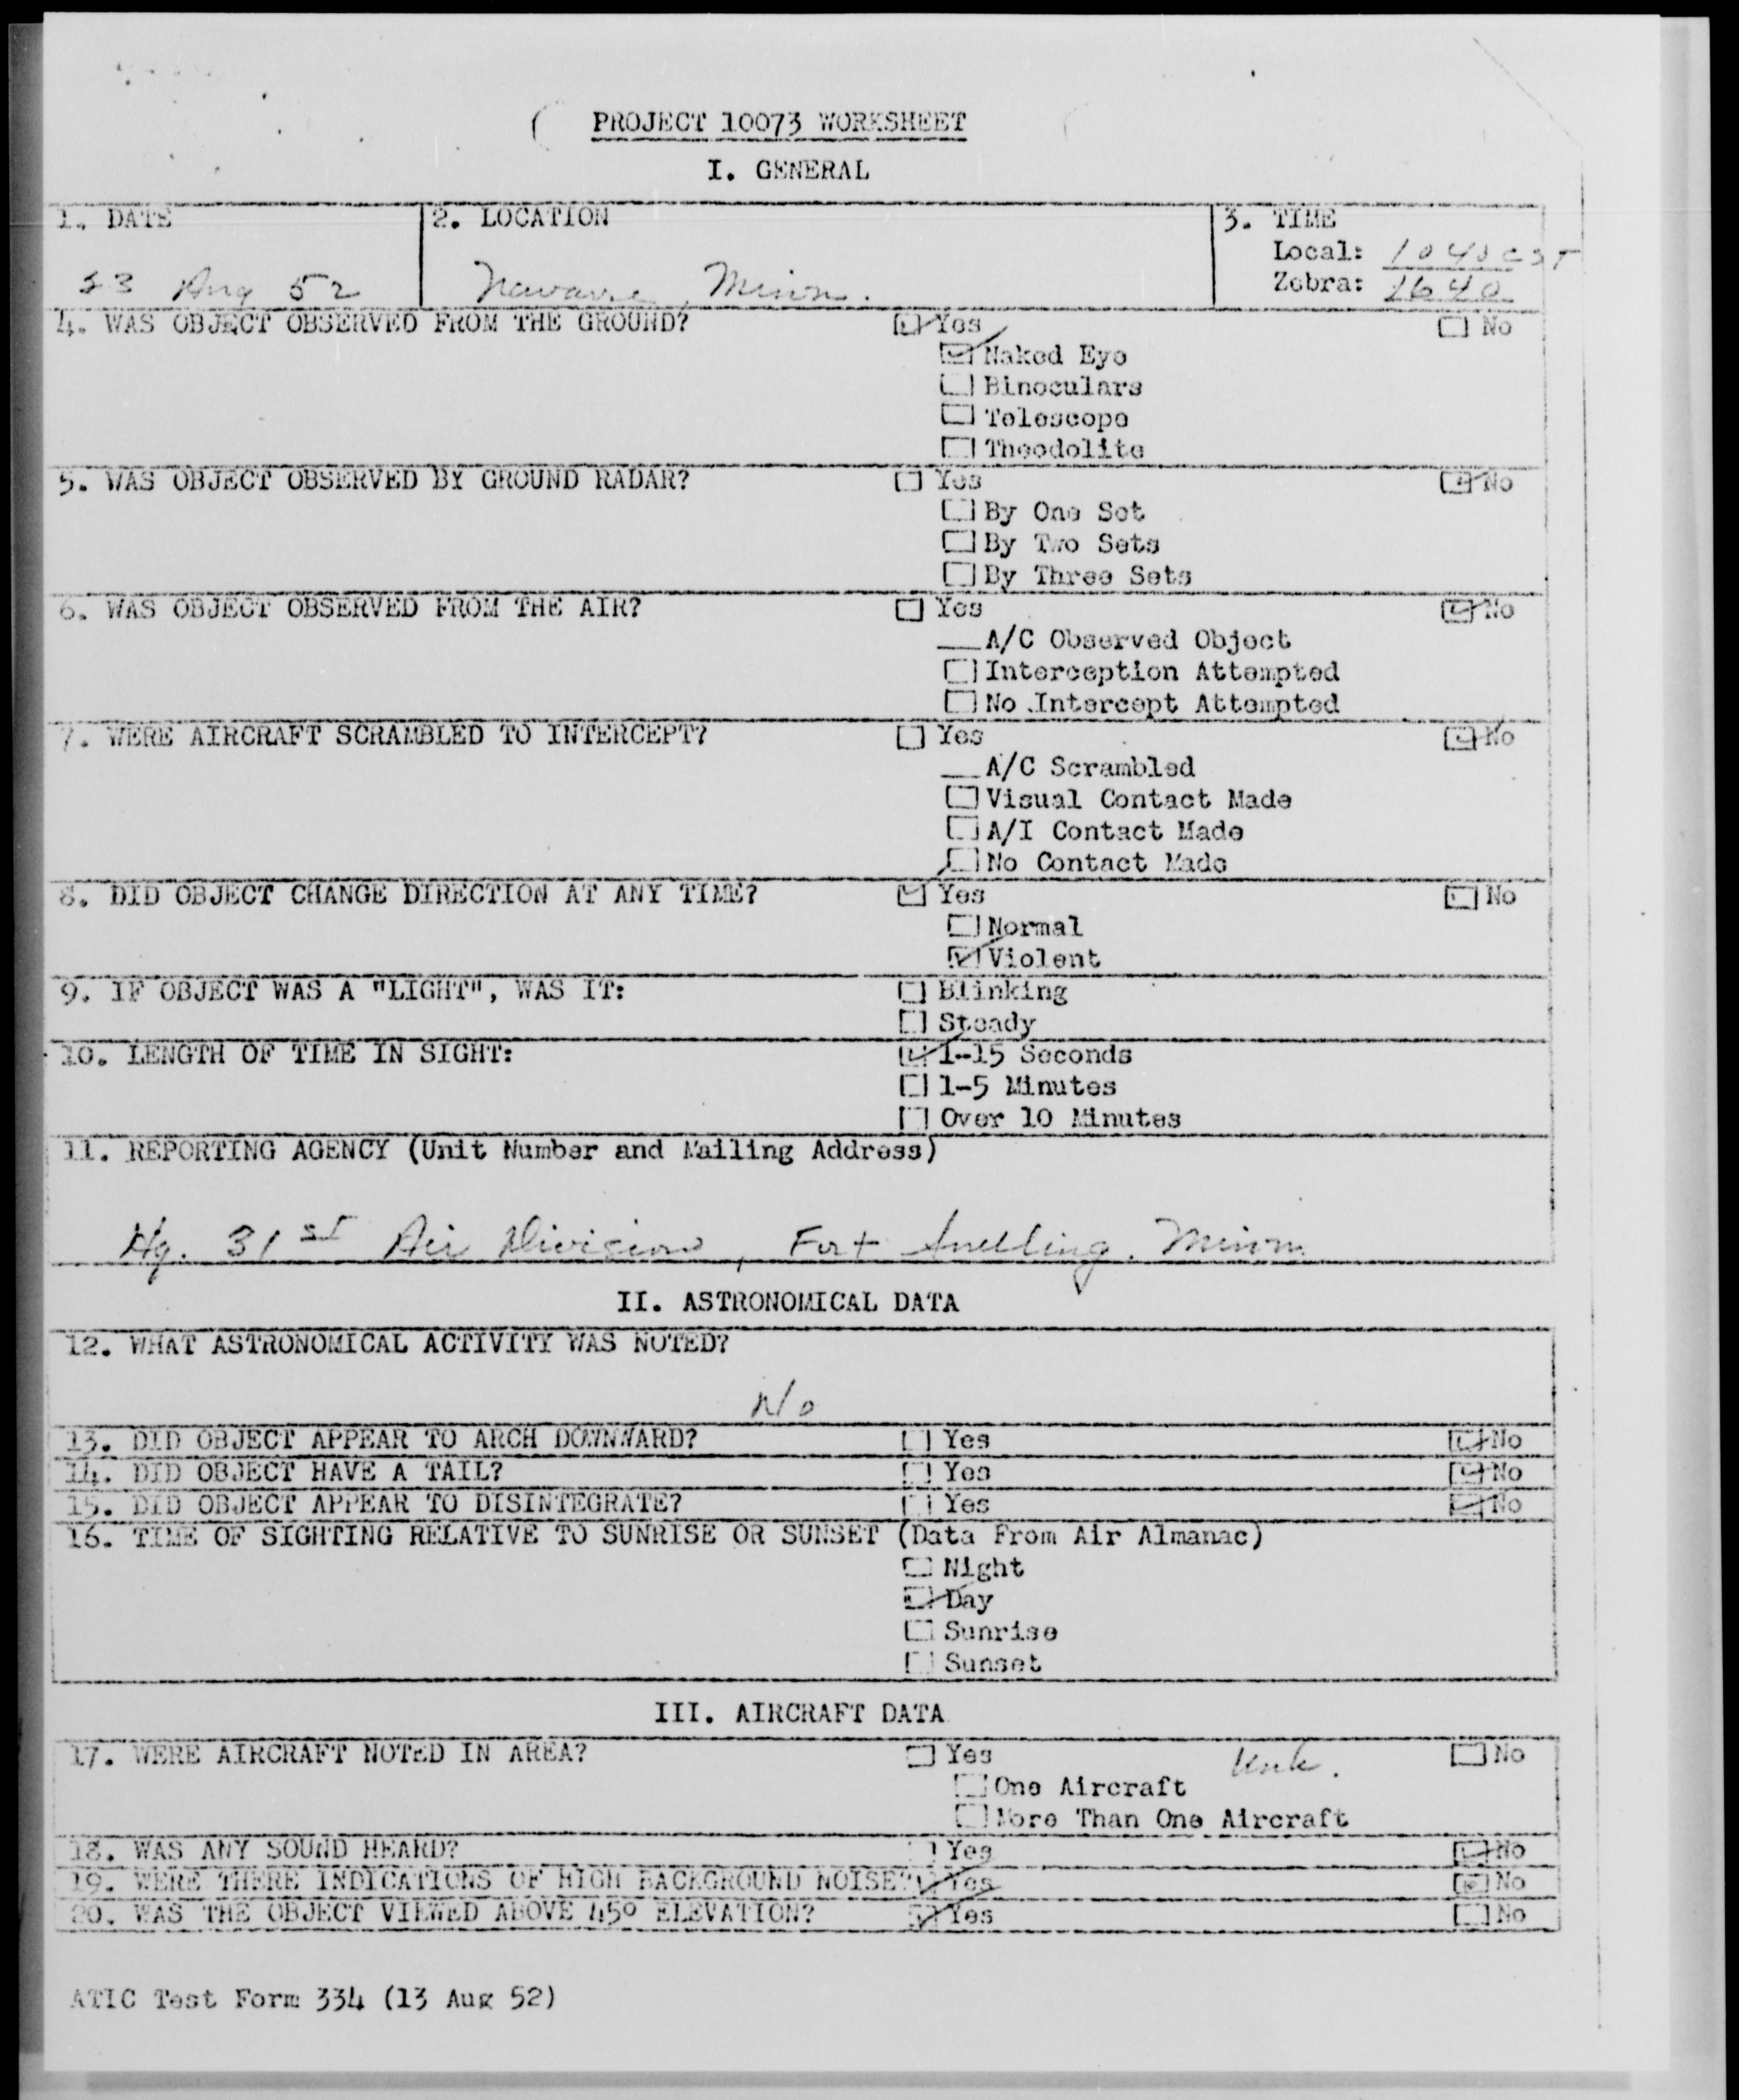 PROJECT 10073 WORKSHEET
I. GENERAL
1. DATE
2. LOCATION
3. TIME
Local: 1040 CST
Zebra: 1640
23 Aug 52
Navarre, Minn.
4. WAS OBJECT OBSERVED FROM THE GROUND? ☑ Yes ☐ No
☑ Naked Eye
☐ Binoculars
☐ Telescope
☐ Theodolite
5. WAS OBJECT OBSERVED BY GROUND RADAR? ☐ Yes ☑ No
☐ By One Set
☐ By Two Sets
☐ By Three Sets
6. WAS OBJECT OBSERVED FROM THE AIR? ☐ Yes ☑ No
__A/C Observed Object
☐ Interception Attempted
☐ No Intercept Attempted
7. WERE AIRCRAFT SCRAMBLED TO INTERCEPT? ☐ Yes ☑ No
__A/C Scrambled
☐ Visual Contact Made
☐ A/I Contact Made
☐ No Contact Made
8. DID OBJECT CHANGE DIRECTION AT ANY TIME? ☑ Yes ☐ No
☐ Normal
☑ Violent
9. IF OBJECT WAS A "LIGHT", WAS IT: ☐ Blinking
☐ Steady
10. LENGTH OF TIME IN SIGHT: ☑ 1-15 Seconds
☐ 1-5 Minutes
☐ Over 10 Minutes
11. REPORTING AGENCY (Unit Number and Mailing Address)
Hq. 31st Air Division, Fort Snelling, Minn
II. ASTRONOMICAL DATA
12. WHAT ASTRONOMICAL ACTIVITY WAS NOTED?
No
13. DID OBJECT APPEAR TO ARCH DOWNWARD? ☐ Yes ☑ No
14. DID OBJECT HAVE A TAIL? ☐ Yes ☑ No
15. DID OBJECT APPEAR TO DISINTEGRATE? ☐ Yes ☑ No
16. TIME OF SIGHTING RELATIVE TO SUNRISE OR SUNSET (Data From Air Almanac)
☐ Night
☑ Day
☐ Sunrise
☐ Sunset
III. AIRCRAFT DATA
17. WERE AIRCRAFT NOTED IN AREA? ☐ Yes Unk. ☐ No
☐ One Aircraft
☐ More Than One Aircraft
18. WAS ANY SOUND HEARD? ☐ Yes ☑ No
19. WERE THERE INDICATIONS OF HIGH BACKGROUND NOISE? ☑ Yes ☐ No
20. WAS THE OBJECT VIEWED ABOVE 45° ELEVATION? ☑ Yes ☐ No
ATIC Test Form 334 (13 Aug 52)